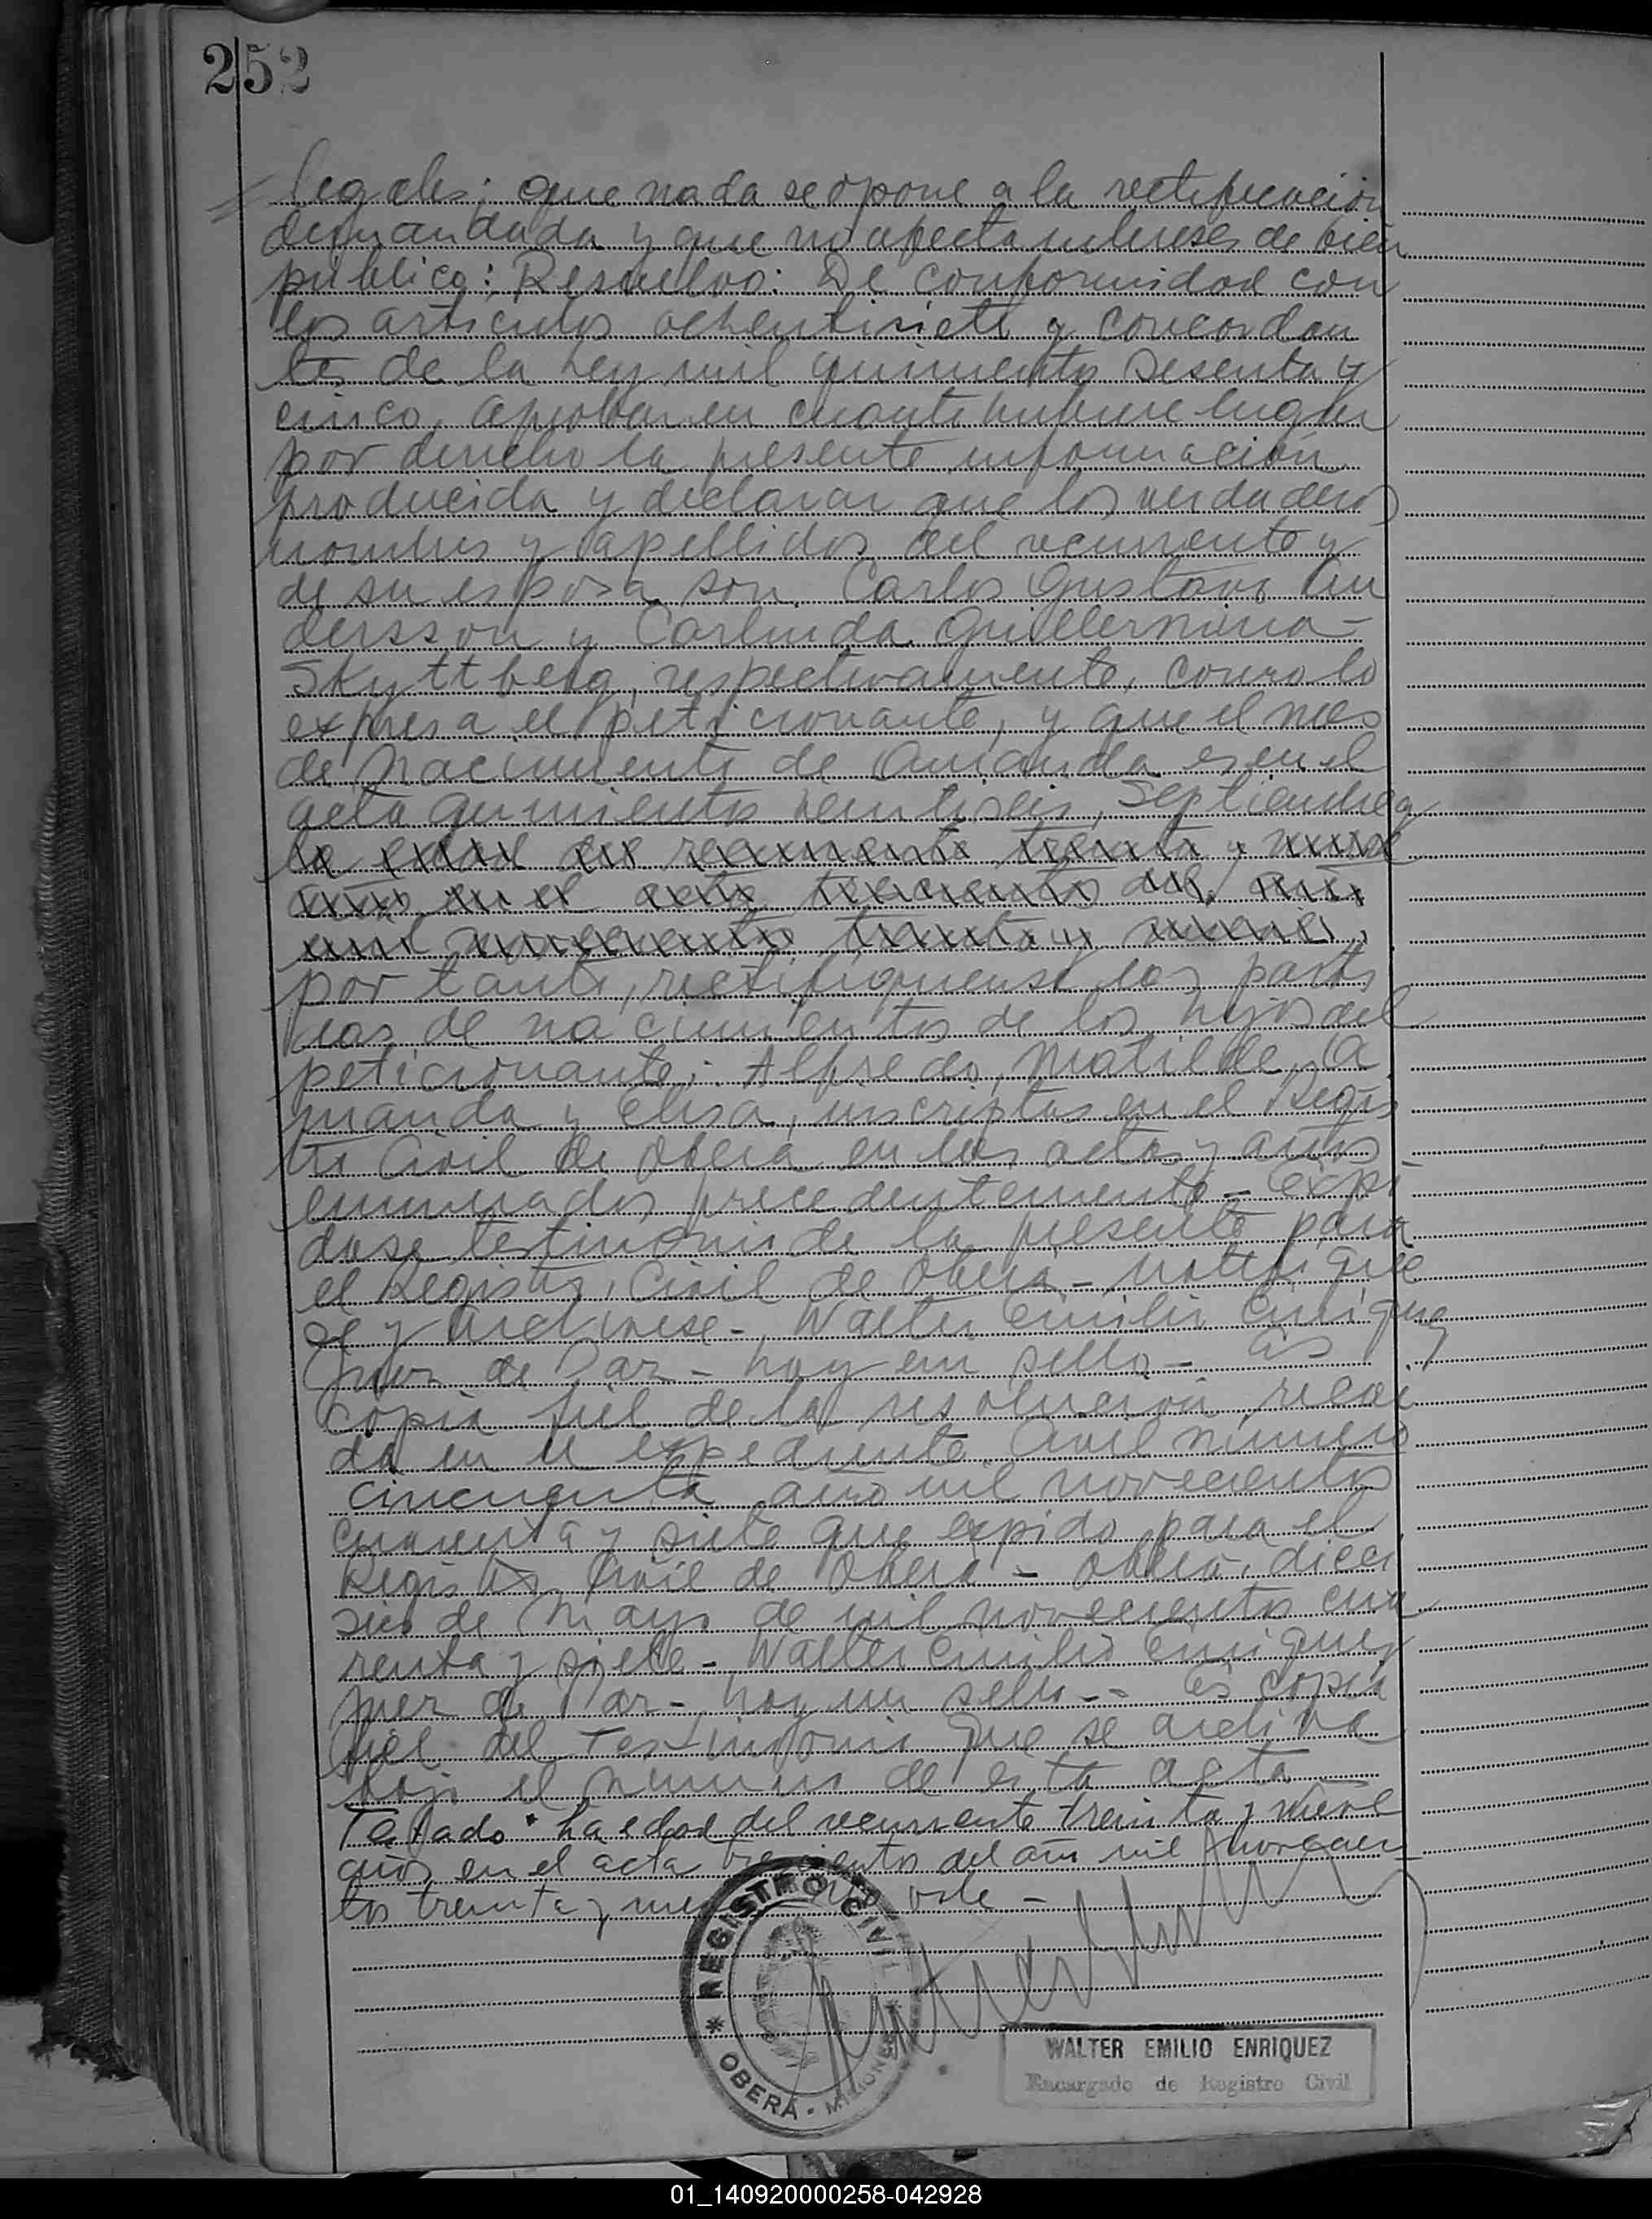 252
legales; que nada se opone a la rectificación
demandada y que no afecta intereses de bien
público; Resuelvo: De conformidad con
los artículos ochentisiete y concordan
tes de la Ley mil quinientos sesenta y
cinco, aprobar en cuanto hubiere lugar
por derecho la presente información
producida y declarar que los verdaderos
nombres y apellidos del recurrente y
de su esposa son Carlos Gustavo An
dersson y Carlinda Guillermina -
Skyttberg, respectivamente, como lo
expresa el peticionante, y que el mes
de nacimiento de Amanda es en el
acta quinientos veintiseis, Septiembre y
la edad del recurrente treinta y nueve
años en el acta trescientos del año
mil novecientos treinta y nueve,
por tanto, rectifiquense las parti
das de nacimientos de los hijos del
peticionante: Alfredo, Matilde, A
manda y Elisa, inscriptas en el Regis
tro Civil de Oberá en las actas y años
enunciados precedentemente - Expi
dase testimonio de la presente para
el Registro Civil de Oberá - Notifique
se y archivese - Walter Emilio Enriquez
Juez de Paz - hay un sello - Es
copia fiel de la resolución recai
da en el expediente Civil número
cincuenta año mil novecientos
cuarenta y siete que expido para el
Registro Civil de Oberá - Oberá, dieci
seis de Mayo de mil novecientos cua
renta y siete - Walter Emilio Enriquez
juez de Paz - hay un sello -- Es copia
fiel del Testimonio que se archiva
bajo el número de esta acta
Testado: La edad del recurrente treinta y nueve
años en el acta trescientos del año mil novecien
tos treinta y nueve no vale -
REGISTRO CIVIL
OBERÁ - MISIONES
WALTER EMILIO ENRIQUEZ
Encargado de Registro Civil
01_140920000258-042928